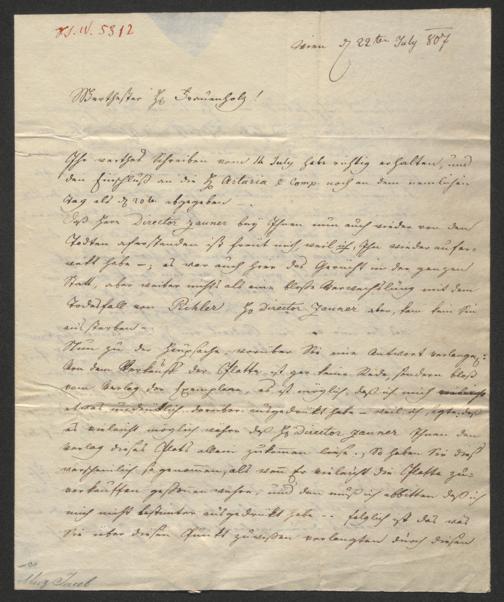 V.S. IV. 5312
Wien d 22ten July 807
Werthester H Frauenholz!
Ihr werthes Schreiben vom 14 July habe richtig erhalten, und
den Einschluß an die H Artaria & Comp. noch an dem nemlichen
Tag als d 20t abgegeben.
Daß Herr Director Zauner bey Ihnen nun auch wieder von den
Todten auferstanden ist freut mich weil ich Ihn wieder aufer-
wekt habe –; es war auch hier das Gerücht in der ganzen
Statt, aber weiter nichts als eine bloße Verwechslung mit dem
Todesfall von H Director Zauner aber, kam kein Sinn
ans sterben –
Nun zu der Hauptsache, worüber Sie eine Antwort verlangen:
Von dem Verkauf der Platte ist gar keine Rede, sondern bloß
vom Verlag der Exemplare, es ist möglich, daß ich mich
etwas undeutlich darüber ausgedrükt habe – weil ich sagte: daß
es vieleicht möglich wäre daß H Director Zauner Ihnen den
Verlag dieses Blats allein zukomen ließe. So haben Sie dieß
warscheinlich so genommen, als wenn Er vieleicht die Platte zu
verkauffen gesonnen wäre, und dann muß ich abbitten daß ich
mich nicht bestimter ausgedrükt habe – folglich ist das was
Sie über diesen Punkt zu wißen verlangten durch diesen